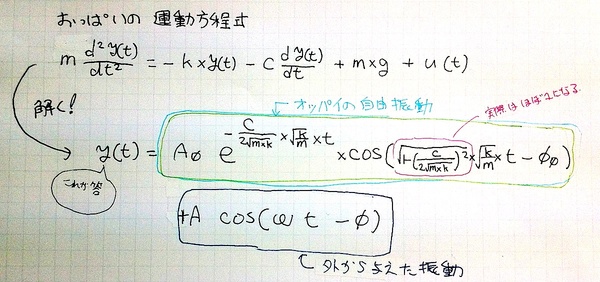 おっぱいの 運動方程式
m d²y(t)/dt² = -k×y(t) - c dy(t)/dt + m×g + u(t)
解く!
オッパイの自由振動
実際はほぼ1になる
y(t) = A₀ e^(-c/(2√(m×k)) × √(k/m) × t) × cos(√(1-(c/(2√(m×k)))²) × √(k/m) × t - φ₀)
これが答
+A cos(ωt - φ)
外から与えた振動